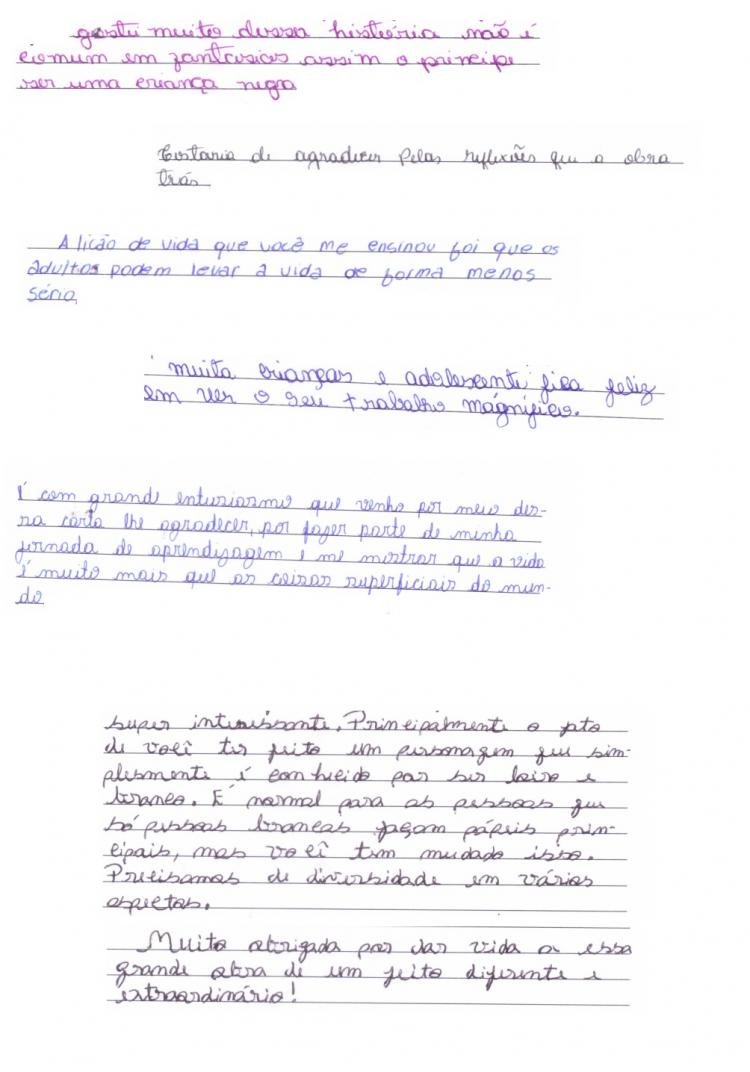 gostei muito dessa história não é
comum em fantasias assim o principe
ser uma criança negra
Gostaria de agradecer Pelas reflexões que a obra
trás
A lição de vida que você me ensinou foi que os
adultos podem levar a vida de forma menos
séria
muita crianças e adolescente fica feliz
em ver o seu trabalho magnífico.
É com grande entusiasmo que venho por meio des-
sa carta lhe agradecer, por fazer parte de minha
jornada de aprendizagem e me mostrar que a vida
é muito mais que as coisas superficiais do mun-
do
super interessante. Principalmente o fato
de você ter feito um personagem que sim-
plesmente é conhecido por ser loiro e
branco. É normal para as pessoas que
só pessoas brancas façam papéis prin-
cipais, mas você tem mudado isso.
Precisamos de diversidade em vários
aspectos.
Muito obrigada por dar vida a essa
grande obra de um jeito diferente e
extraordinário!